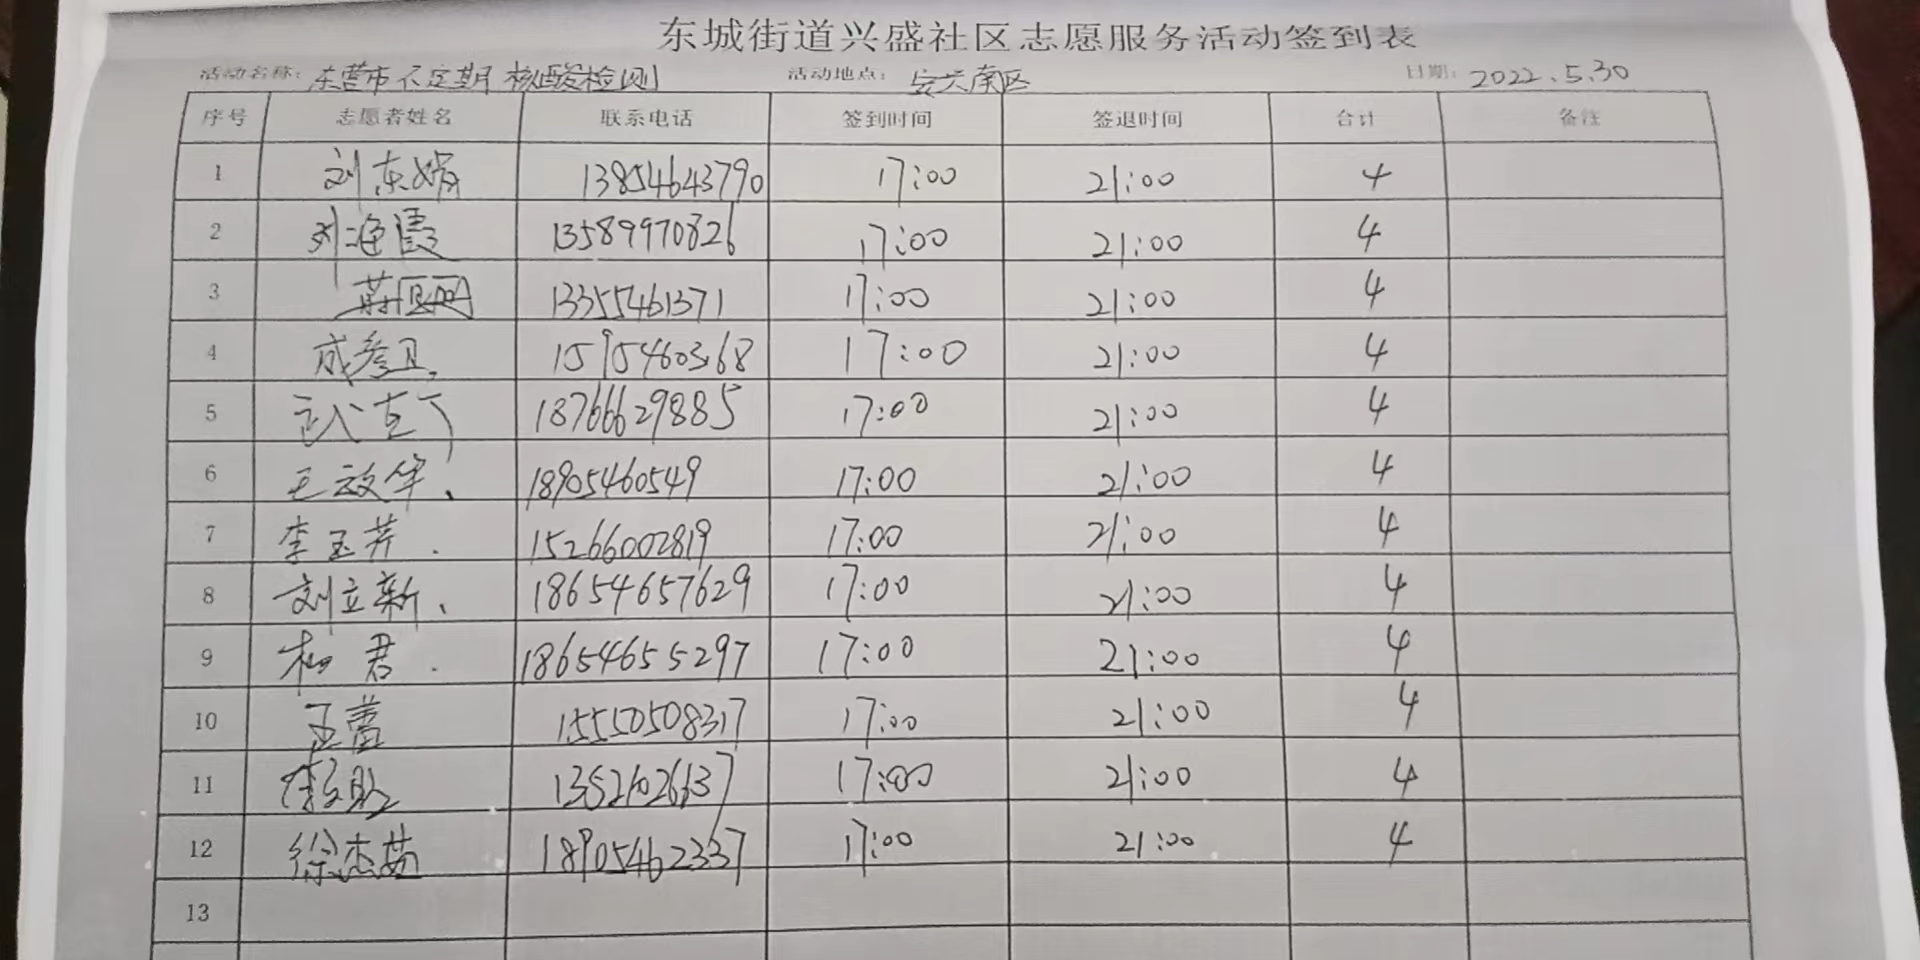 东城街道兴盛社区志愿服务活动签到表
活动名称: 东营市不定期核酸检测 活动地点: 安兴南区 日期: 2022.5.30
序号 志愿者姓名 联系电话 签到时间 签退时间 合计 备注
1 刘东娟 13854643790 17:00 21:00 4
2 刘海霞 13589970826 17:00 21:00 4
3 13355461371 17:00 21:00 4
4 成参卫 1595460368 17:00 21:00 4
5 18766629885 17:00 21:00 4
6 王效华 18905460549 17:00 21:00 4
7 李玉芹 15266002819 17:00 21:00 4
8 刘立新 18654657629 17:00 21:00 4
9 柳君 18654655297 17:00 21:00 4
10 王蕾 15550508317 17:00 21:00 4
11 17:00 21:00 4
12 徐杰茹 18905462337 17:00 21:00 4
13